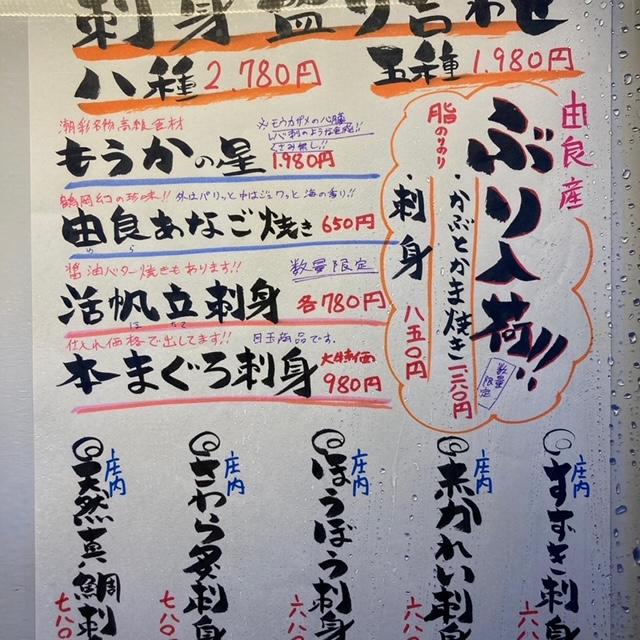 刺身盛り合わせ
八種 2.780円
五種 1.980円
潮彩名物高級食材
※モウカザメの心臓
レバ刺のような食感!!
くさみ無し!!
もうかの星 1.980円
鶴岡幻の珍味!! 外はパリッと中はジュワッと 海の香り!!
由良あなご焼き 650円
ゆら
醤油バター焼きもあります!! 数量限定
活帆立刺身 各780円
ほたて
仕入れ価格で出してます!! 目玉商品です。
本まぐろ刺身 大特価 980円
由良産
ぶり入荷!!
数量限定
脂のりのり
・かぶとかま焼き
・刺身 八五〇円
庄内 すずき刺身
庄内 赤かれい刺身 六八〇
庄内 ほうぼう刺身 六八〇
庄内 さわら炙刺身 七八〇
庄内 天然真鯛刺 七八〇